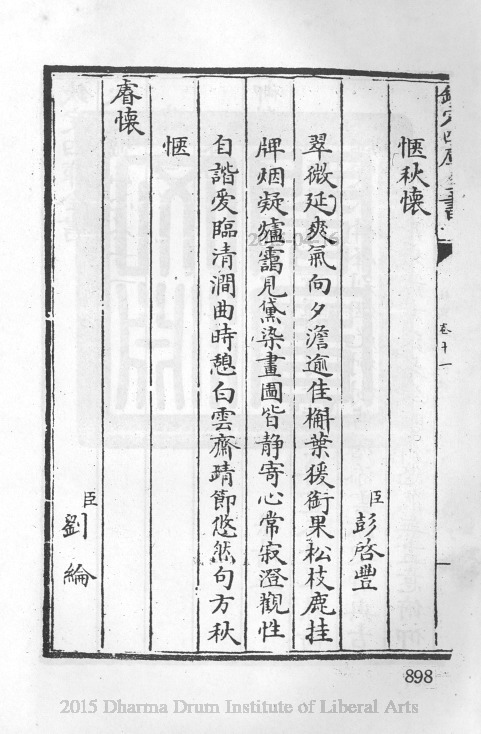 欽定四庫全書
卷十一
愜秋懷
臣彭啓豐
翠微延爽氣向夕澹逾佳槲葉猨銜果松枝鹿挂
牌烟凝爐靄見黛染畫圖皆静寄心常寂澄觀性
自諧爱臨清澗曲時憩白雲齋晴節悠然句方秋
愜
睿懷
臣劉綸
898
2015 Dharma Drum Institute of Liberal Arts